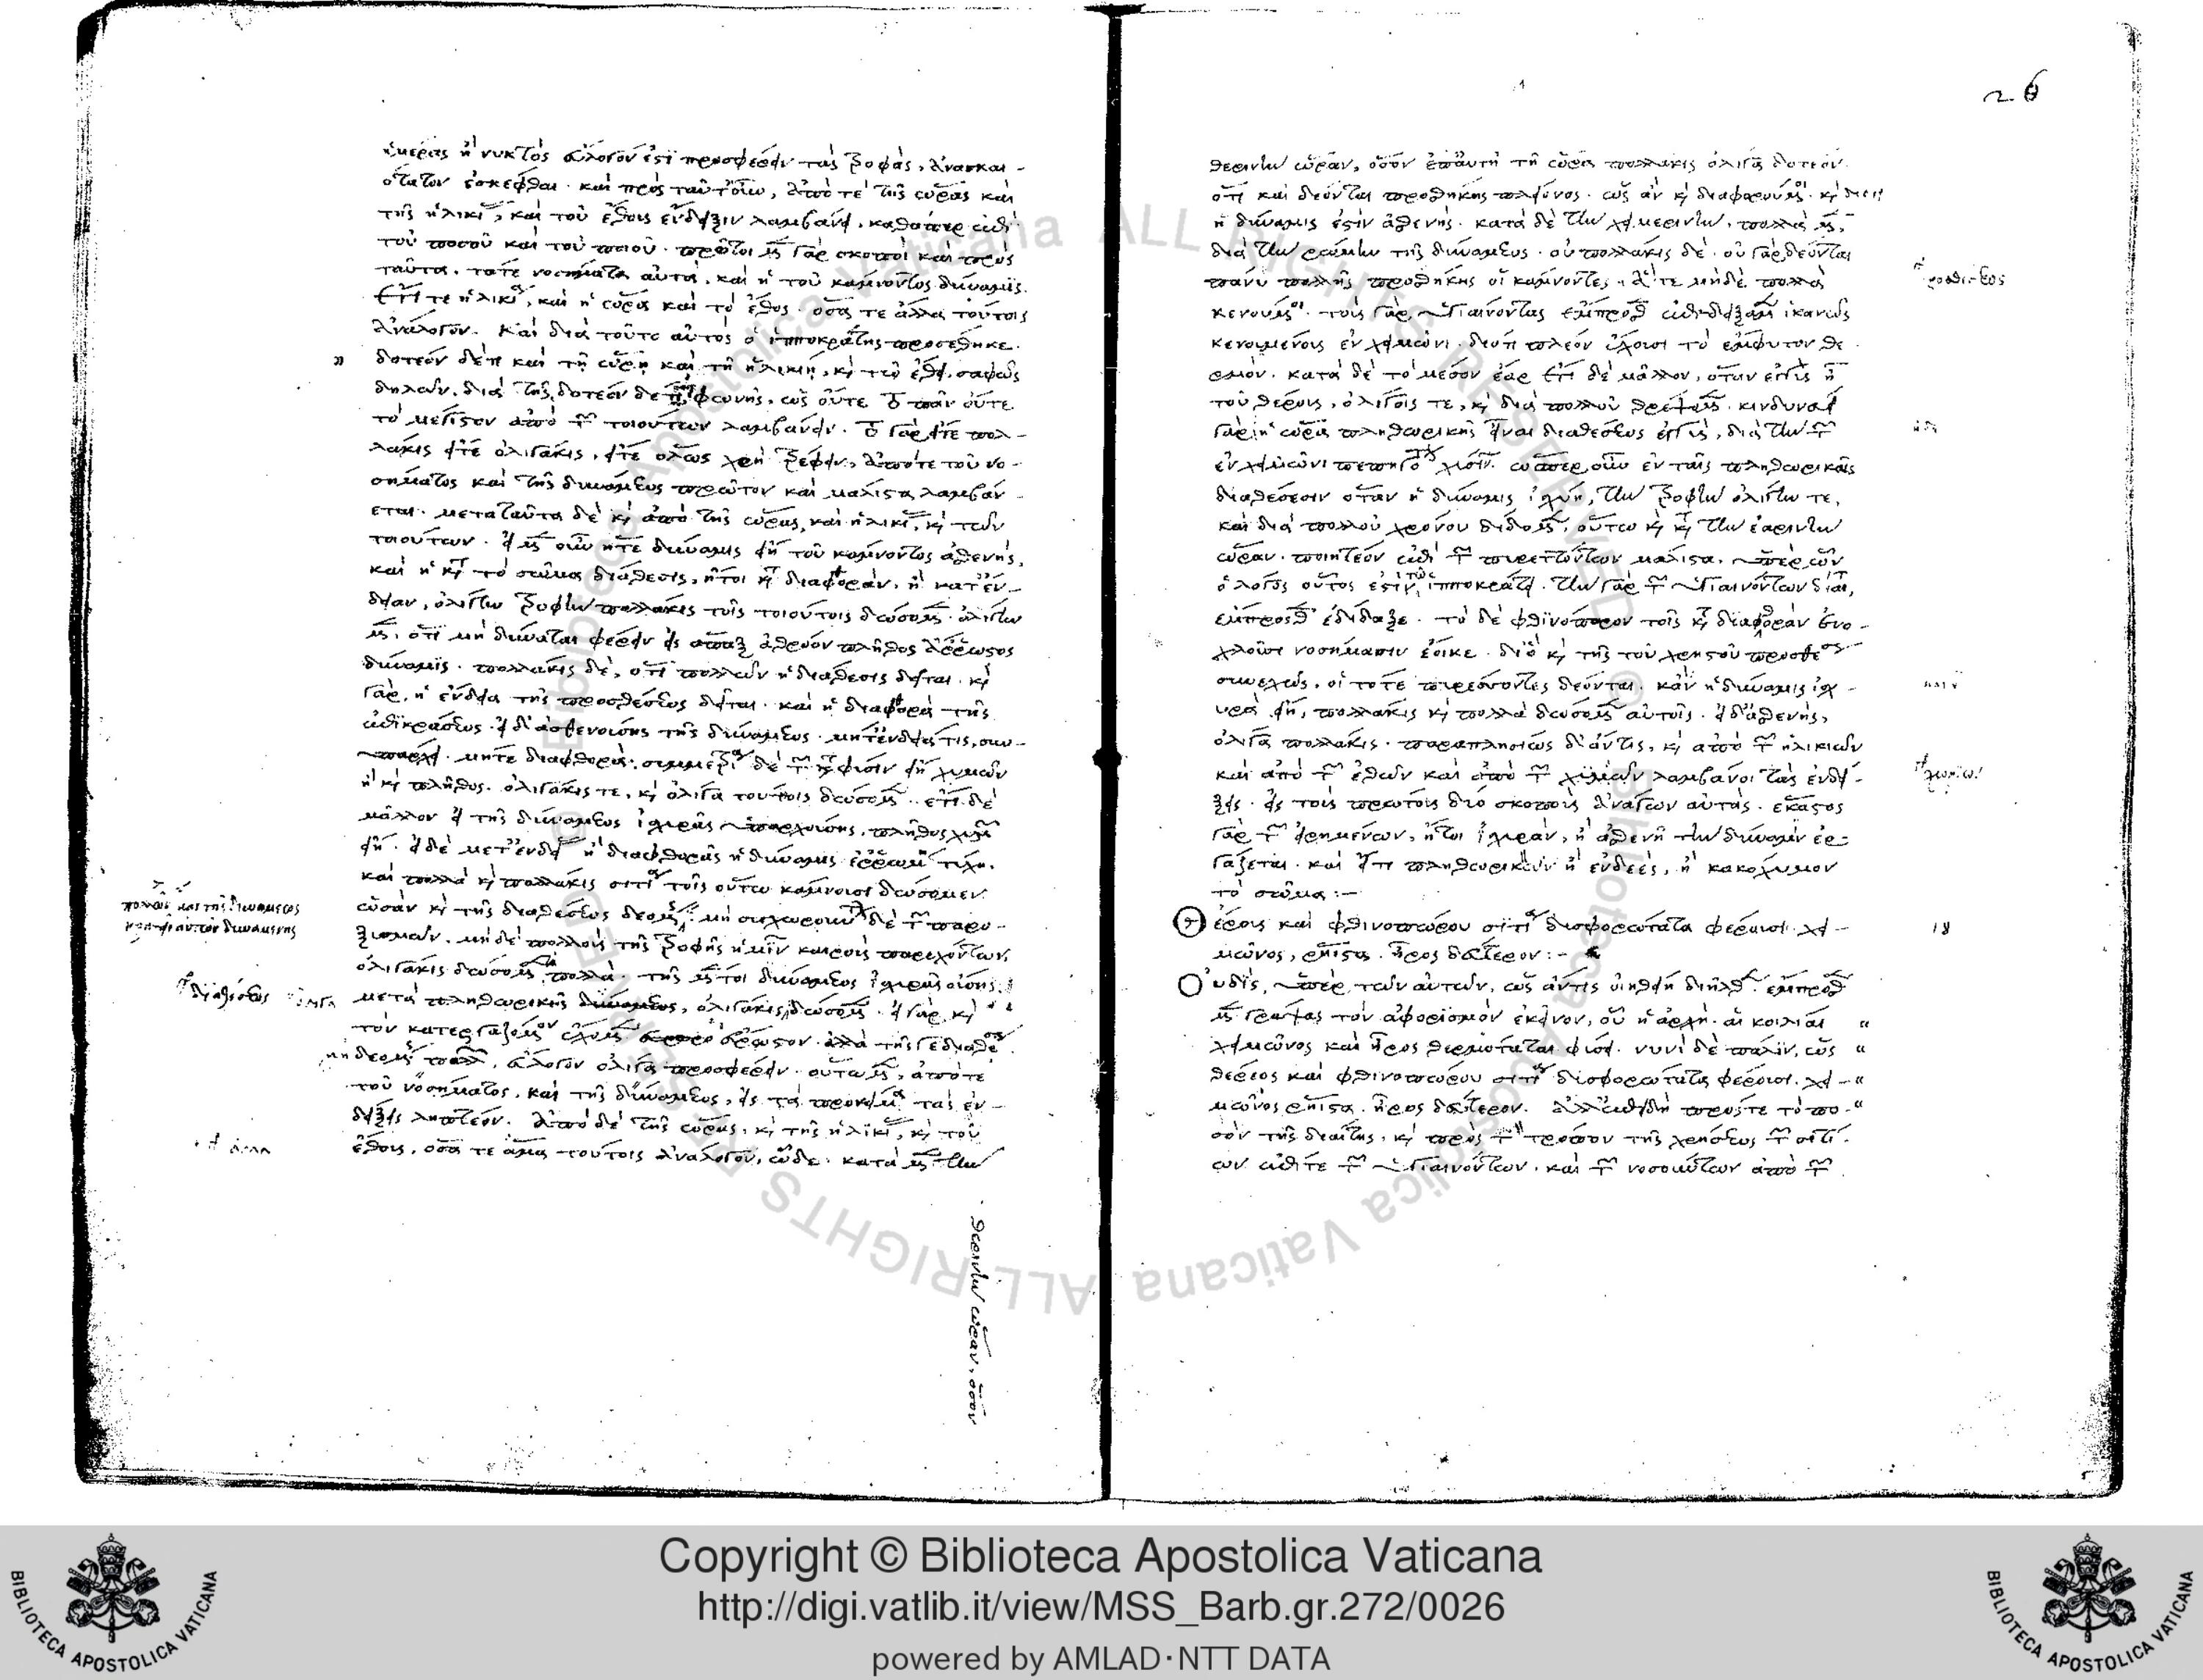 ἡμέρας ἢ νυκτὸς εὔλογόν ἐστι προσφέρειν τὰς τροφάς, ἀναγκαι-
ότατον ἐσκέφθαι. καὶ πρὸς ταῦτ' οὖν, ἀπό τε τῆς ὥρας καὶ
τῆς ἡλικίας, καὶ τοῦ ἔθους ἔνδειξιν λαμβάνει, καθάπερ ἐπὶ
τοῦ ποσοῦ καὶ τοῦ ποιοῦ. πρῶτοι μὲν γὰρ σκοποὶ καὶ πρὸς
ταῦτα, τά τε νοσήματα αὐτά, καὶ ἡ τοῦ κάμνοντος δύναμις.
ἔτι τε ἡλικία, καὶ ἡ ὥρα καὶ τὸ ἔθος. ὅσα τε ἄλλα τούτοις
ἀνάλογον. καὶ διὰ τοῦτο αὐτὸς ὁ ἱπποκράτης προσέθηκε.
" δοτέον δέ τι καὶ τῇ ὥρῃ καὶ τῇ ἡλικίῃ, καὶ τῷ ἔθει. σαφῶς
δηλῶν, διὰ τῆς δοτέον δέ τι φωνῆς, ὡς οὔτε τὸ πᾶν οὔτε
τὸ μέγιστον ἀπὸ τῶν τοιούτων λαμβάνειν. τὸ γὰρ εἴτε πολ-
λάκις εἴτε ὀλιγάκις, εἴτε ὅλως χρὴ τρέφειν, ἀπό τε τοῦ νο-
σήματος καὶ τῆς δυνάμεως πρῶτον καὶ μάλιστα λαμβάν-
εται. μετὰ ταῦτα δὲ καὶ ἀπὸ τῆς ὥρας, καὶ ἡλικίας, καὶ τῶν
τοιούτων. εἰ μὲν οὖν ἥτε δύναμις εἴη τοῦ κάμνοντος ἀσθενής,
καὶ ἡ κατὰ τὸ σῶμα διάθεσις, ἤτοι κατὰ διαφθοράν, ἢ κατ' ἔν-
δειαν, ὀλίγην τροφὴν πολλάκις τοῖς τοιούτοις δώσομεν. ὀλίγην
μέν, ὅτι μὴ δύναται φέρειν εἰς ἅπαξ ἀθρόον πλῆθος ἄρρωστος
δύναμις. πολλάκις δέ, ὅτι πολλῶν ἡ διάθεσις δεῖται. καὶ
γὰρ, ἡ ἔνδεια τῆς προσθέσεως δεῖται. καὶ ἡ διαφθορὰ τῆς
ἐπικράσεως. εἰ δ' ἀσθενούσης τῆς δυνάμεως, μήτ' ἔνδειά τις, συν-
υπάρχει, μήτε διαφθορά, συμμετρία δὲ τῶν κατὰ φύσιν εἴη χυμῶν
ἢ καὶ πλῆθος, ὀλιγάκις τε, καὶ ὀλίγα τουτοις δώσομεν. ἔτι δὲ
μᾶλλον εἰ τῆς δυνάμεως ἰσχυρᾶς ὑπαρχούσης, πλῆθος χυμῶν
εἴη. εἰ δὲ μετ' ἐνδείας ἢ διαφθορᾶς ἡ δύναμις ἐρρωμένη τύχῃ,
καὶ πολλὰ καὶ πολλάκις σιτία τοῖς οὕτω κάμνουσι δώσομεν
ὀλιγάκις δώσομεν πολλά. τῆς μέντοι δυνάμεως ἰσχυρᾶς οὔσης,
μετὰ πληθωρικῆς δυνάμεως, ὀλιγάκις δώσομεν. εἰ γὰρ καὶ
τοῦ νοσήματος, καὶ τῆς δυνάμεως, εἰς τὰ προκείμενα τὰς ἐν-
δείξεις ληπτέον. ἀπὸ δὲ τῆς ὥρας, καὶ τῆς ἡλικίας, καὶ τοῦ
ἔθους, ὅσα τε ἅμα τούτοις ἀνάλογον, ὧδε. κατὰ μὲν τὴν
θερινὴν ὥραν, ὅσον
26
θερινὴν ὥραν, ὅσον ἐπ' αὐτῇ τῇ ὥρᾳ πολλάκις ὀλίγα δοτέον.
ὅτι καὶ δέονται προσθήκης πλείονος. ὡς ἂν καὶ διαφορούμενοι. καὶ διότι
ἡ δύναμίς ἐστιν ἀσθενής. κατὰ δὲ τὴν χειμερινήν, πολλὰ μέν,
διὰ τὴν ῥώμην τῆς δυνάμεως. οὐ πολλάκις δέ. οὐ γὰρ δέονται
πάνυ πολλῆς προσθήκης οἱ κάμνοντες, ἅτε μηδὲ πολλὰ
κενούμενοι. τοὺς γὰρ ὑγιαίνοντας ἔμπροσθεν ἐπιδείξαμεν ἱκανῶς
κενουμένους ἐν χειμῶνι. διότι πλέον ἔχουσι τὸ ἔμφυτον θε-
ρμόν. κατὰ δὲ τὸ μέσον ἔαρ ἔτι δὲ μᾶλλον, ὅταν ἐγγὺς ᾖ
τοῦ θέρους, ὀλίγοις τε, καὶ διὰ πολλοῦ θρέψομεν. κινδυνεύει
γὰρ ἡ ὥρα πληθωρικῆς εἶναι διαθέσεως ἐγγύς, διὰ τὴν τῶν
ἐν χειμῶνι πεπηγότων χύσιν. ὥσπερ οὖν ἐν ταῖς πληθωρικαῖς
διαθέσεσιν ὅταν ἡ δύναμις ἰσχύῃ, τὴν τροφὴν ὀλίγην τε,
καὶ διὰ πολλοῦ χρόνου δίδομεν, οὕτω καὶ κατὰ τὴν ἐαρινὴν
ὥραν. ποιητέον ἐπὶ τῶν πυρεττόντων μάλιστα, ὑπὲρ ὧν
ὁ λόγος οὗτός ἐστιν τῷ ἱπποκράτει. τὴν γὰρ τῶν ὑγιαινόντων δίαιταν,
ἔμπροσθεν ἐδίδαξε. τὸ δὲ φθινόπωρον τοῖς κατὰ διαφθορὰν ἐνο-
χλοῦσι νοσήμασιν ἔοικε. διὸ καὶ τῆς τοῦ χρηστοῦ προσθέσεως
συνεχῶς, οἱ τότε πυρέσσοντες δέονται. κἂν ἡ δύναμις ἰσχ-
υρὰ εἴη, πολλάκις καὶ πολλὰ δώσομεν αὐτοῖς. εἰ δ' ἀσθενής,
ὀλίγα πολλάκις. παραπλησίως δ' ἄν τις, καὶ ἀπὸ τῶν ἡλικιῶν
καὶ ἀπὸ τῶν ἐθῶν καὶ ἀπὸ τῶν χυμῶν λαμβάνοι τὰς ἐνδεί-
ξεις. εἰς τοὺς πρώτους δύο σκοποὺς ἀνάγων αὐτάς. ἕκαστος
γὰρ τῶν εἰρημένων, ἤτοι ἰσχυράν, ἢ ἀσθενῆ τὴν δύναμιν ἐρ-
γάζεται. καὶ ἔτι πληθωρικὸν ἢ ἐνδεές, ἢ κακόχυμον
τὸ σῶμα:-
Θέρους καὶ φθινοπώρου σιτία δυσφορώτατα φέρουσι. χει- 18
μῶνος, ῥήιστα. ἦρος δεύτερον:-
Οὐδείς, ὑπὲρ τῶν αὐτῶν, ὡς ἄν τις οἰηθείη διῆλθεν. ἔμπροσθεν
μὲν γράψας τὸν ἀφορισμὸν ἐκεῖνον, οὗ ἡ ἀρχή. αἱ κοιλίαι "
χειμῶνος καὶ ἦρος θερμόταται φύσει. νυνὶ δὲ πάλιν, ὡς "
θέρεος καὶ φθινοπώρου σιτία δυσφορώτατα φέρουσι. χει-"
μῶνος ῥήιστα. ἦρος δεύτερον. ἀλλ' ἐπειδὴ πρός τε τὸ πο-"
σὸν τῆς διαίτης, καὶ πρὸς τὸν τρόπον τῆς χρήσεως τῶν σιτί-
ων ἐπί τε τῶν ὑγιαινόντων, καὶ τῶν νοσούντων ἀπὸ τῶν
Copyright © Biblioteca Apostolica Vaticana
http://digi.vatlib.it/view/MSS_Barb.gr.272/0026
powered by AMLAD·NTT DATA
BIBLIOTECA APOSTOLICA VATICANA
BIBLIOTECA APOSTOLICA VATICANA